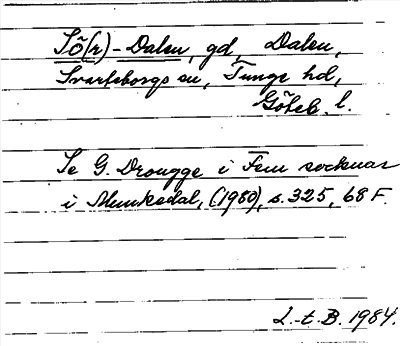 Sö(r)-Dalen, gd, Dalen,
Svarteborgs sn, Tunge hd,
Göteb. l.
Se G. Drougge i Fem socknar
i Munkedal, (1980), s. 325, 68 F.
L.-t. B. 1984.